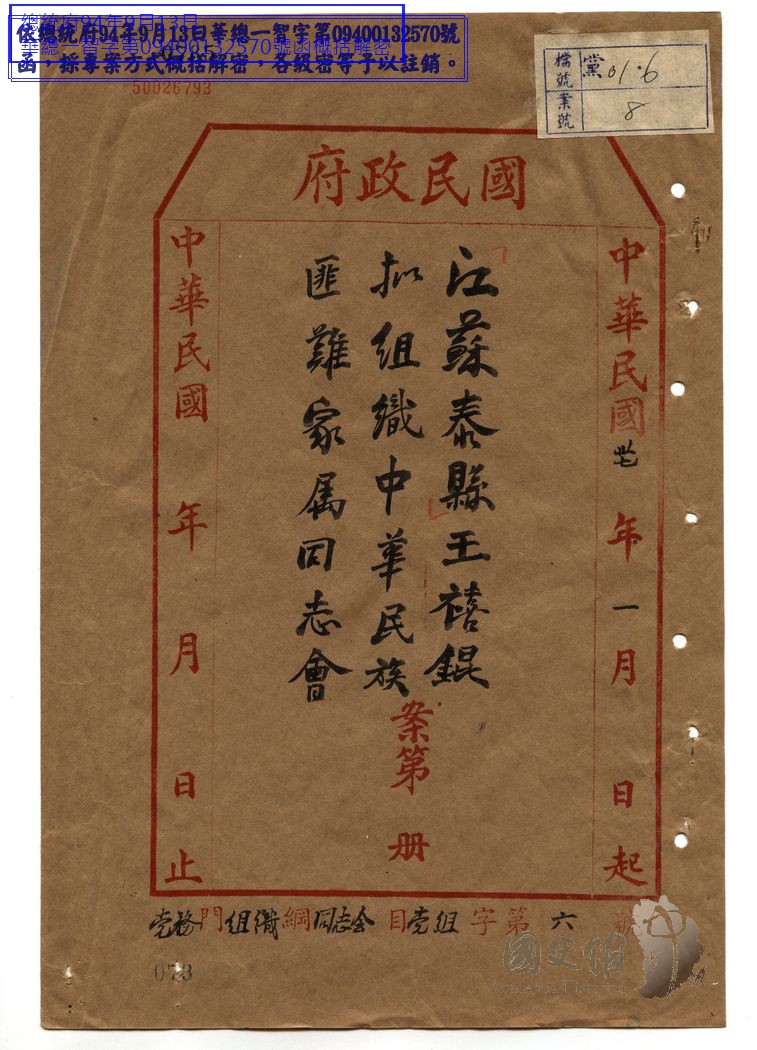 總統府94年9月13日
華總一智字第09400132570號函概括解密
依總統府94年9月13日華總一智字第09400132570號
函，採專案方式概括解密，各級密等予以註銷。
50026793
檔號 黨01.6
案號 8
國民政府
中華民國卅七年一月 日起
江蘇泰縣王禧錕
擬組織中華民族
匪難家屬同志會
案第 册
中華民國 年 月 日止
党務門組織綱同志会目党組字第六號
073
國史館